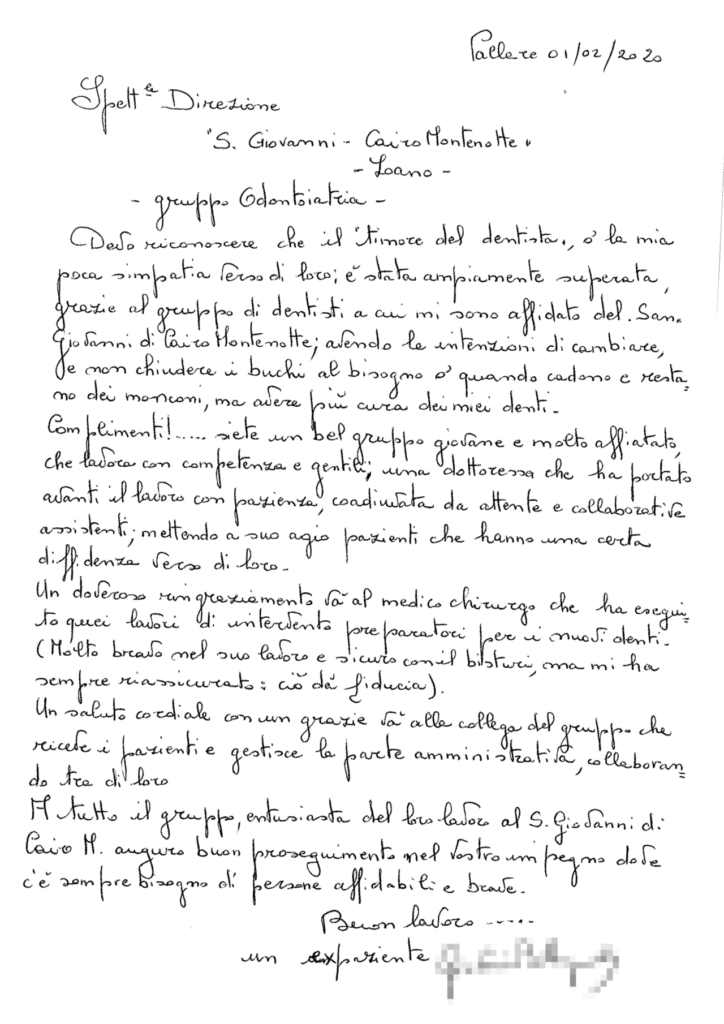 Pallere 01/02/2020
Spett.le Direzione
"S. Giovanni - Cairo Montenotte"
- Loano -
- gruppo Odontoiatria -
Devo riconoscere che il "timore del dentista", o' la mia
poca simpatia verso di loro; é stata ampiamente superata,
grazie al gruppo di dentisti a cui mi sono affidato del San
Giovanni di Cairo Montenotte; avendo le intenzioni di cambiare,
se non chiudere i buchi al bisogno o' quando cadono e resta=
no dei monconi, ma avere più cura dei miei denti.
Complimenti!..... siete un bel gruppo giovane e molto affiatato,
che lavora con competenza e gentili; una dottoressa che ha portato
avanti il lavoro con pazienza, coadiuvata da attente e collaborative
assistenti; mettendo a suo agio pazienti che hanno una certa
diffidenza verso di loro.
Un doveroso ringraziamento và al medico chirurgo che ha esegui=
to quei lavori di intervento preparatori per i nuovi denti.
(Molto bravo nel suo lavoro e sicuro con il bisturi, ma mi ha
sempre riassicurato: ciò dà fiducia).
Un saluto cordiale con un grazie và alla collega del gruppo che
riceve i pazienti e gestisce la parte amministrativa, collaboran=
do tra di loro
A tutto il gruppo, entusiasta del loro lavoro al S. Giovanni di
Cairo M. auguro buon proseguimento nel vostro impegno dove
c'è sempre bisogno di persone affidabili e brave.
Buon lavoro .....
un expaziente